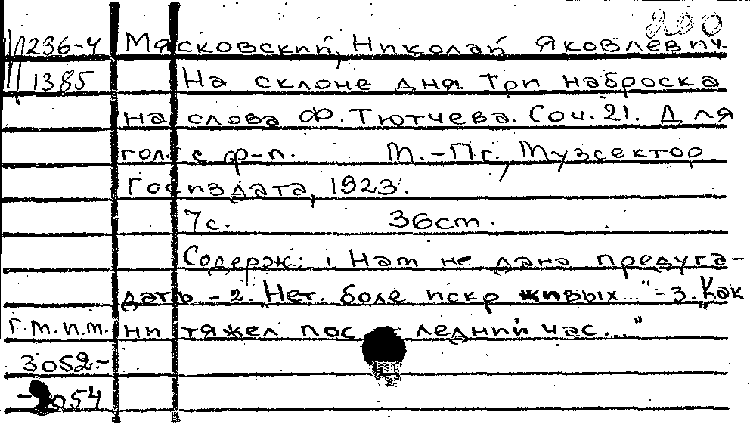 200
1236-4 Мясковский, Николай Яковлевич.
1385 На склоне дня. Три наброска
на слова Ф. Тютчева. Соч. 21. Для
гол. с ф-п. М.-Пг., Музсектор
Госиздата, 1923.
7с. 36cm.
Содерж: 1 Нам не дано предуга-
дать - 2. Нет. боле искр живых..."-3. Как
г.м.п.м. ни тяжел последний час..."
3052-
-3054